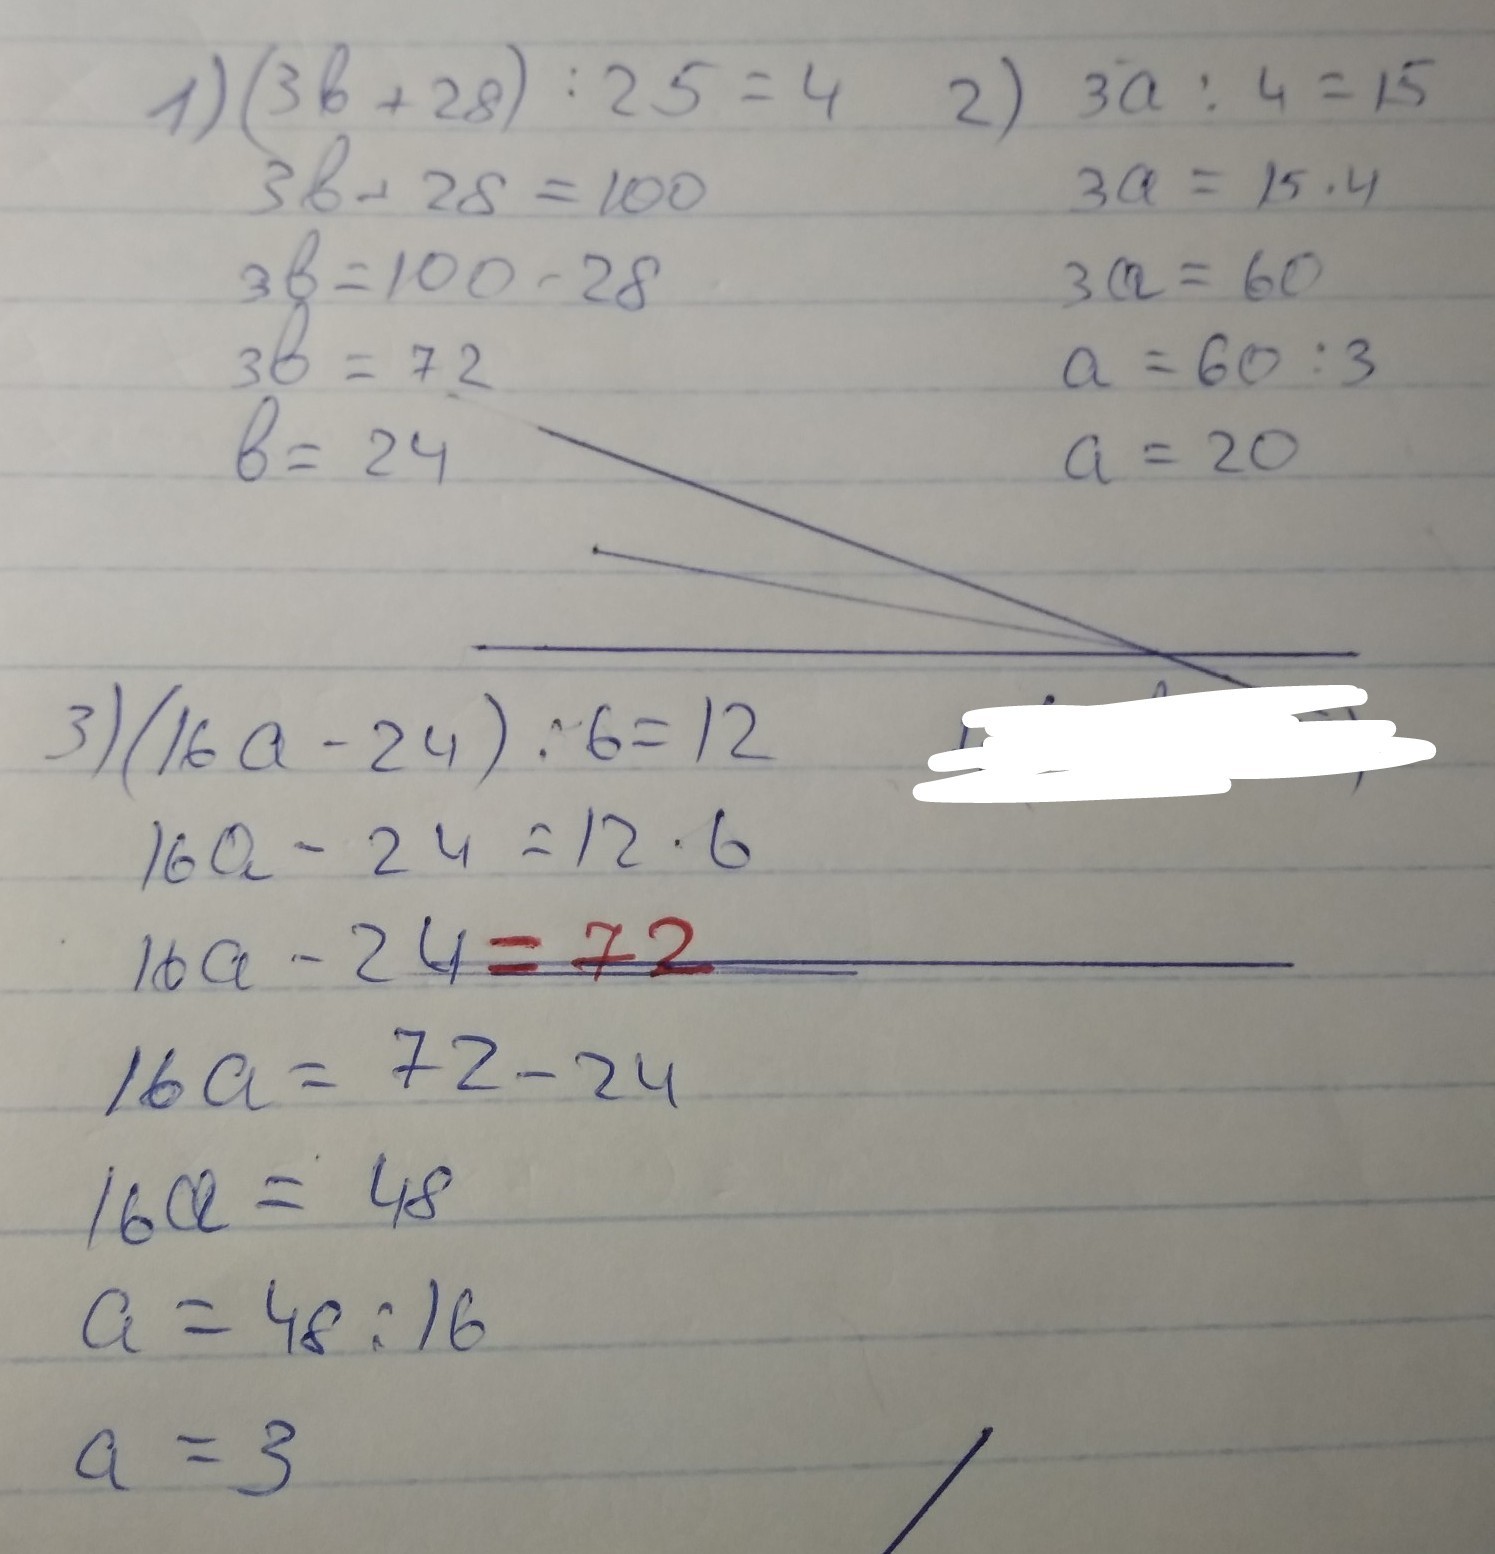 1) (3b + 28) : 25 = 4
3b + 28 = 100
3b = 100 - 28
3b = 72
b = 24
2) 3a : 4 = 15
3a = 15 · 4
3a = 60
a = 60 : 3
a = 20
3) (16a - 24) : 6 = 12
16a - 24 = 12 · 6
16a - 24 = 72
16a = 72 - 24
16a = 48
a = 48 : 16
a = 3